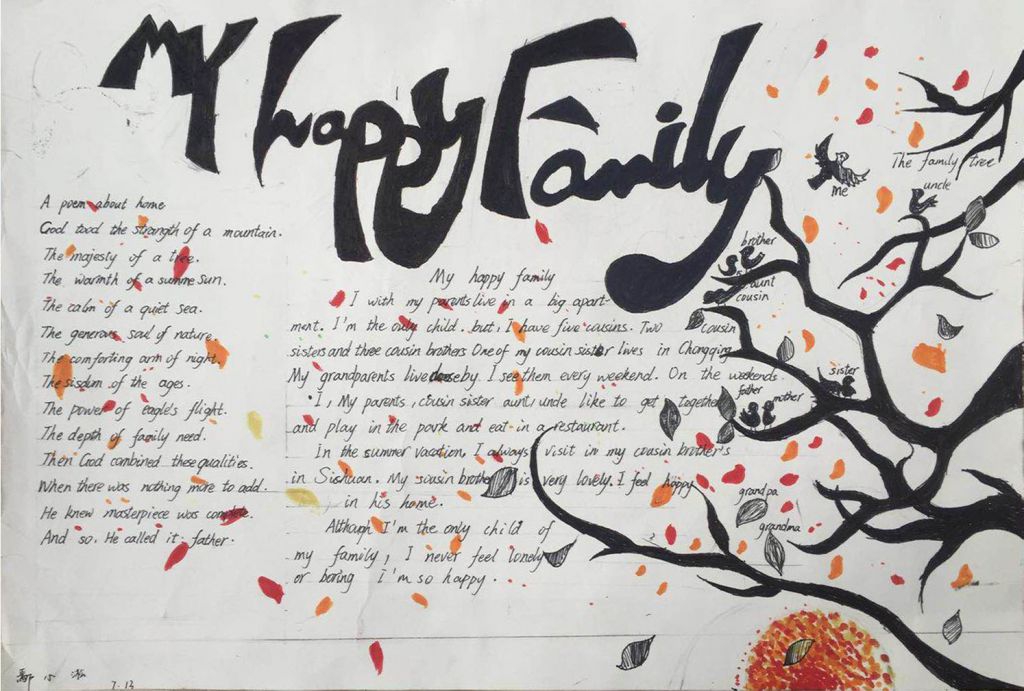 My Happy Family
A poem about home
God tood the strength of a mountain.
The majesty of a tree.
The warmth of a summe sun.
The calm of a quiet sea.
The generous soul of nature.
The comforting arm of night.
The sisdom of the ages.
The power of eagle's flight.
The depth of family need.
Then God combined these qualities.
When there was nothing more to add.
He knew masterpiece was complete.
And so. He called it. father.
My happy family
I with my parents live in a big apart-
ment. I'm the only child. but, I have five cousins. Two cousin
sisters and three cousin brothers One of my cousin sister lives in Chongqing
My grandparents live closeby. I see them every weekend. On the weekends.
I, My parents, cousin sister aunt, uncle like to get together
and play in the park and eat in a restaurant.
In the summer vacation, I always visit in my cousin brother's
in Sichuan. My cousin brother is very lovely. I feel happy
in his home.
Although I'm the only child of
my family, I never feel lonely
or boring I'm so happy.
The family tree
me
uncle
brother
aunt
cousin
sister
father
mother
grandpa
grandma
7.13